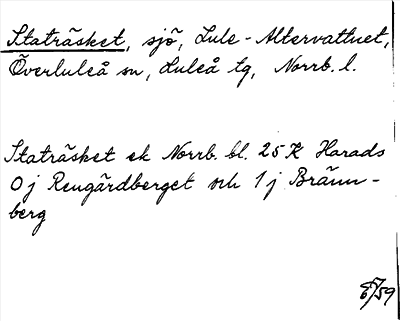 Staträsket, sjö, Lule-Altervattnet,
Överluleå sn, Luleå tg, Norrb. l.
Staträsket ek Norrb. bl. 25 K Harads
0 j Rengärdberget och 1 j Bränn-
berg
/59